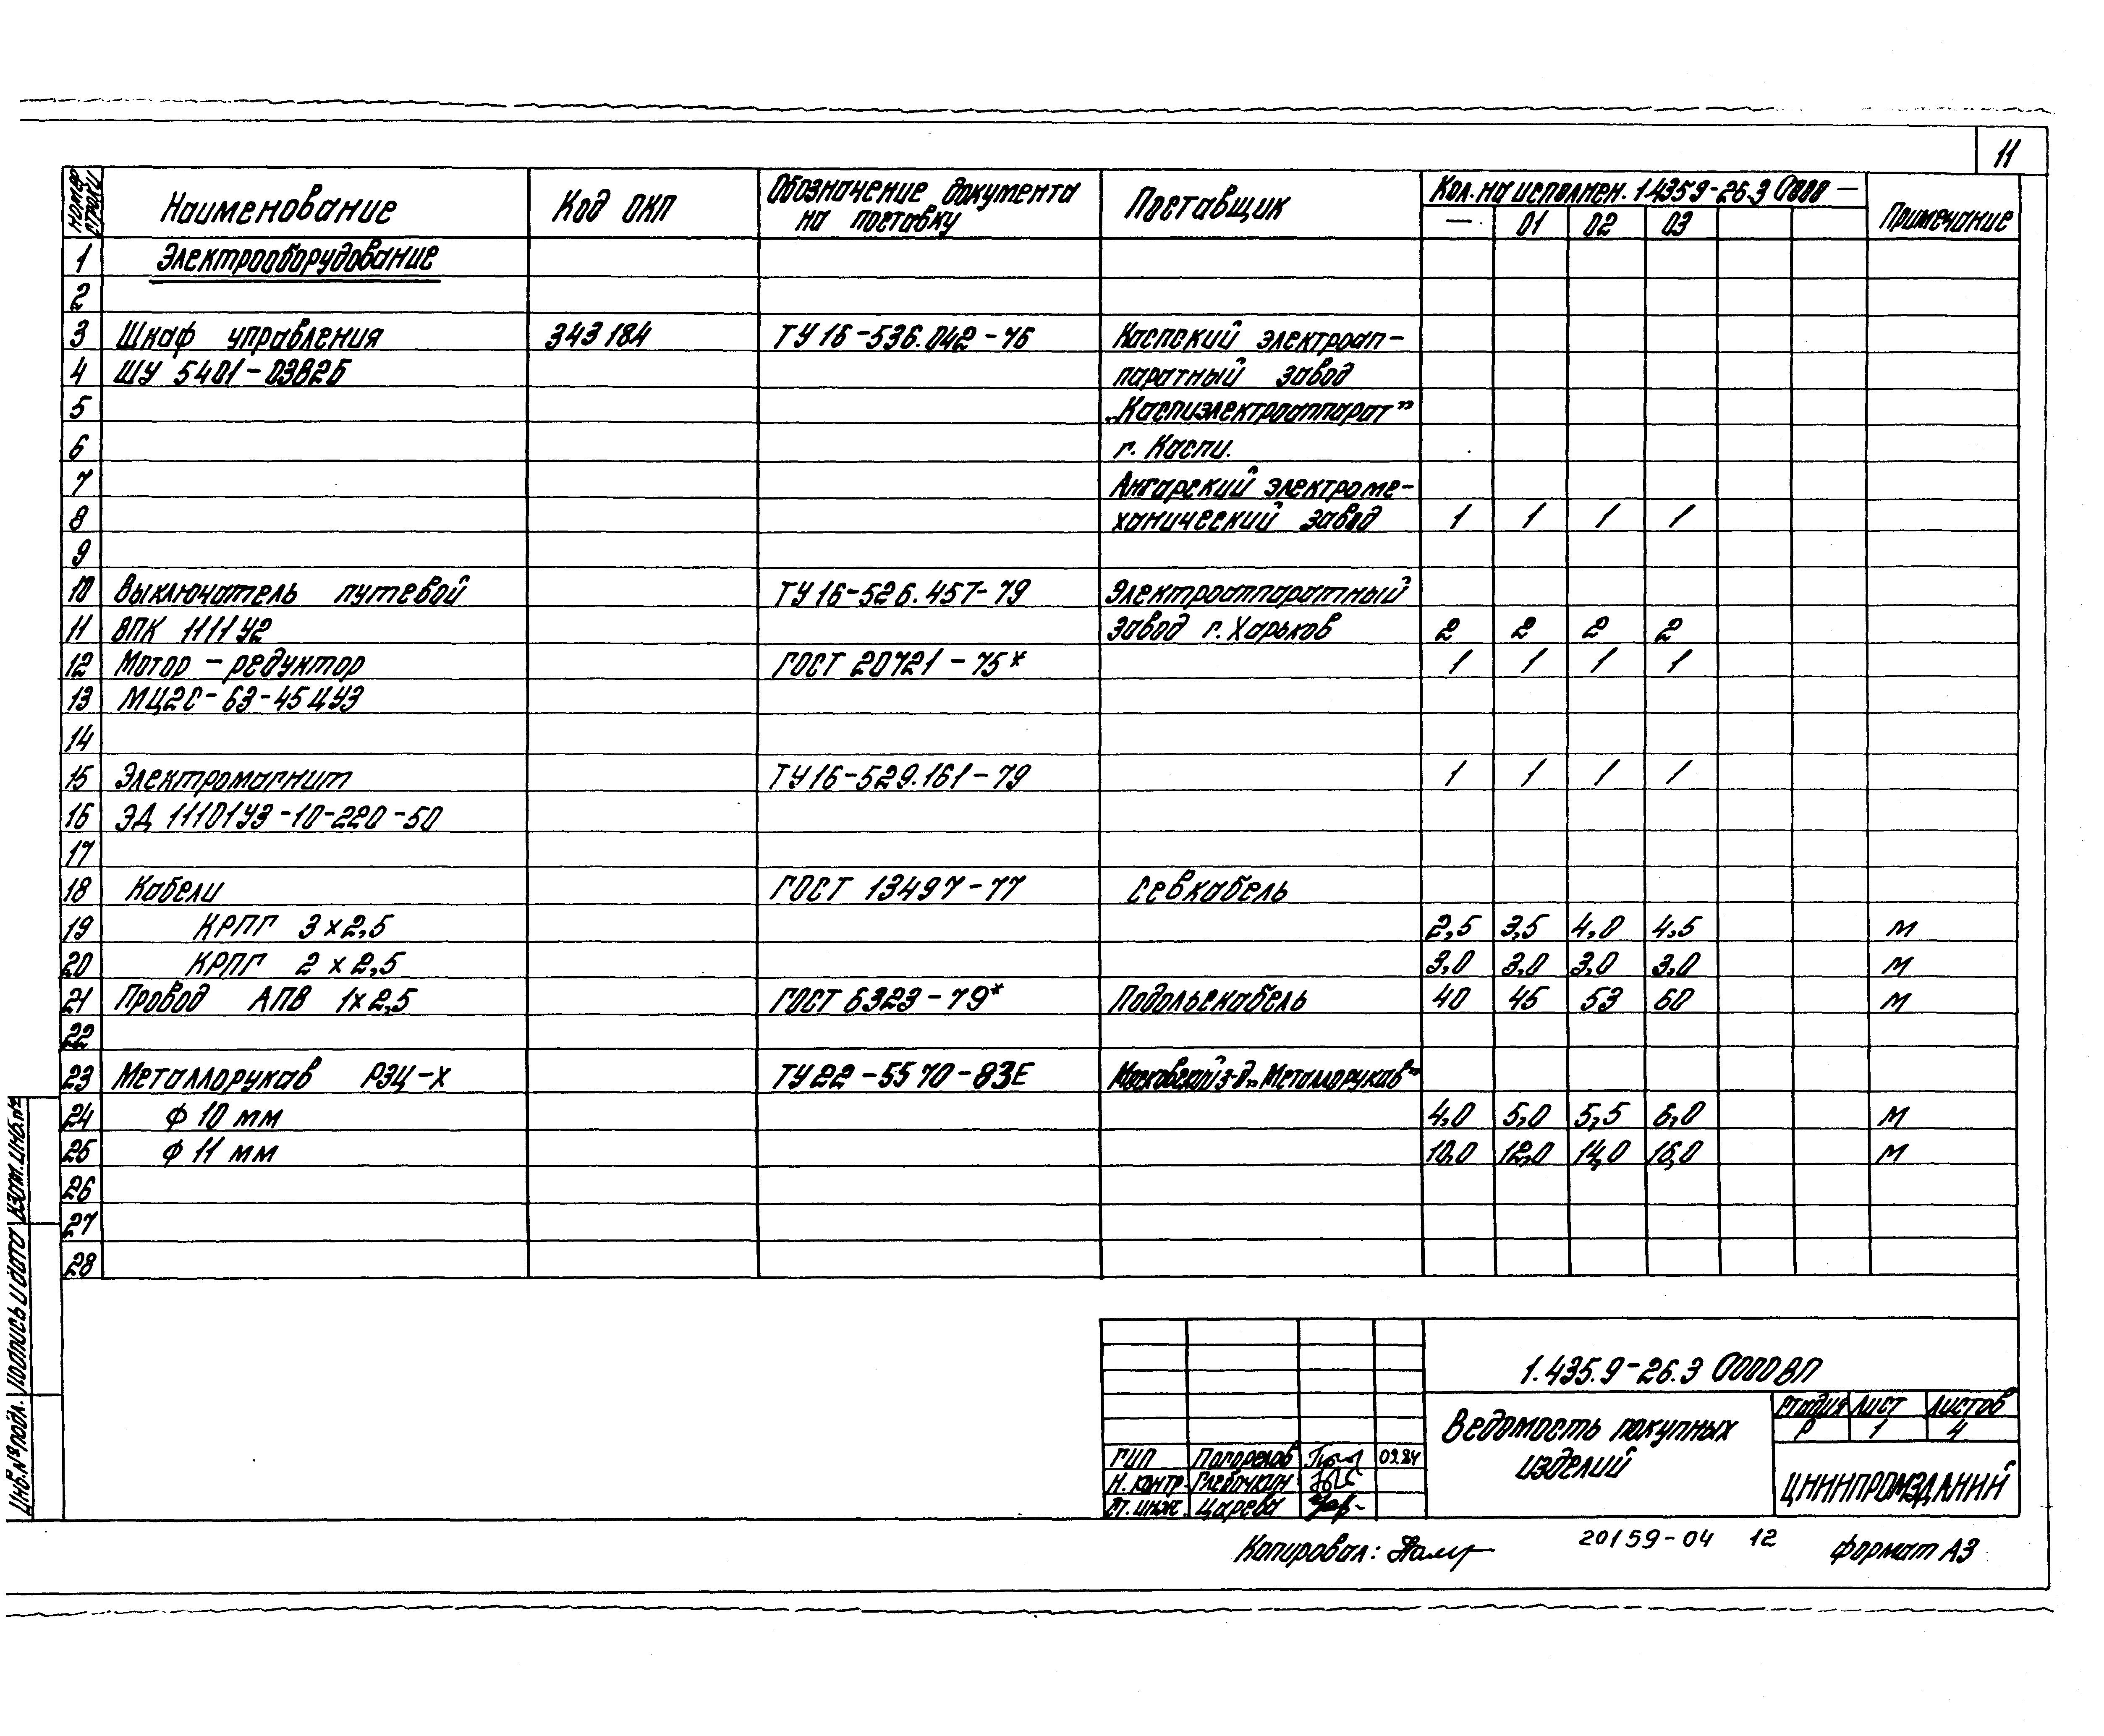 11
Номер строки | Наименование | Код ОКП | Обозначение документа на поставку | Поставщик | Кол. на исполнен. 1.435.9-26.3 0000 — | Примечание
— | 01 | 02 | 03
1 Электрооборудование
2
3 Шкаф управления 343184 ТУ16-536.042-76 Каспский электроап-
4 ШУ 5401-03В2Б паратный завод
5 „Каспиэлектроаппарат”
6 г. Каспи.
7 Ангарский электроме-
8 ханический завод 1 1 1 1
9
10 Выключатель путевой ТУ16-526.457-79 Электроаппаратный
11 ВПК 1111У2 завод г. Харьков 2 2 2 2
12 Мотор-редуктор ГОСТ 20721-75* 1 1 1 1
13 МЦ2С-63-45ЦУ3
14
15 Электромагнит ТУ16-529.161-79 1 1 1 1
16 ЭД 11101У3-10-220-50
17
18 Кабели ГОСТ 13497-77 Севкабель
19 КРПГ 3х2,5 2,5 3,5 4,0 4,5 м
20 КРПГ 2х2,5 3,0 3,0 3,0 3,0 м
21 Провод АПВ 1х2,5 ГОСТ 6323-79* Подольсккабель 40 45 53 60 м
22
23 Металлорукав РЗЦ-Х ТУ22-5570-83Е Московский з-д „Металлорукав”
24 Ф 10 мм 4,0 5,0 5,5 6,0 м
25 Ф 11 мм 10,0 12,0 14,0 16,0 м
26
27
28
Инв.№подл. Подпись и дата Взам.инв.№
1.435.9-26.3 0000ВП
Ведомость покупных
изделий
Стадия Лист Листов
Р 1 4
ЦНИИПРОМЗДАНИЙ
ГИП Погорелов 09.84
Н. контр. Глебочкин
Ст. инж. Царева
Копировал:
20159-04 12
Формат А3